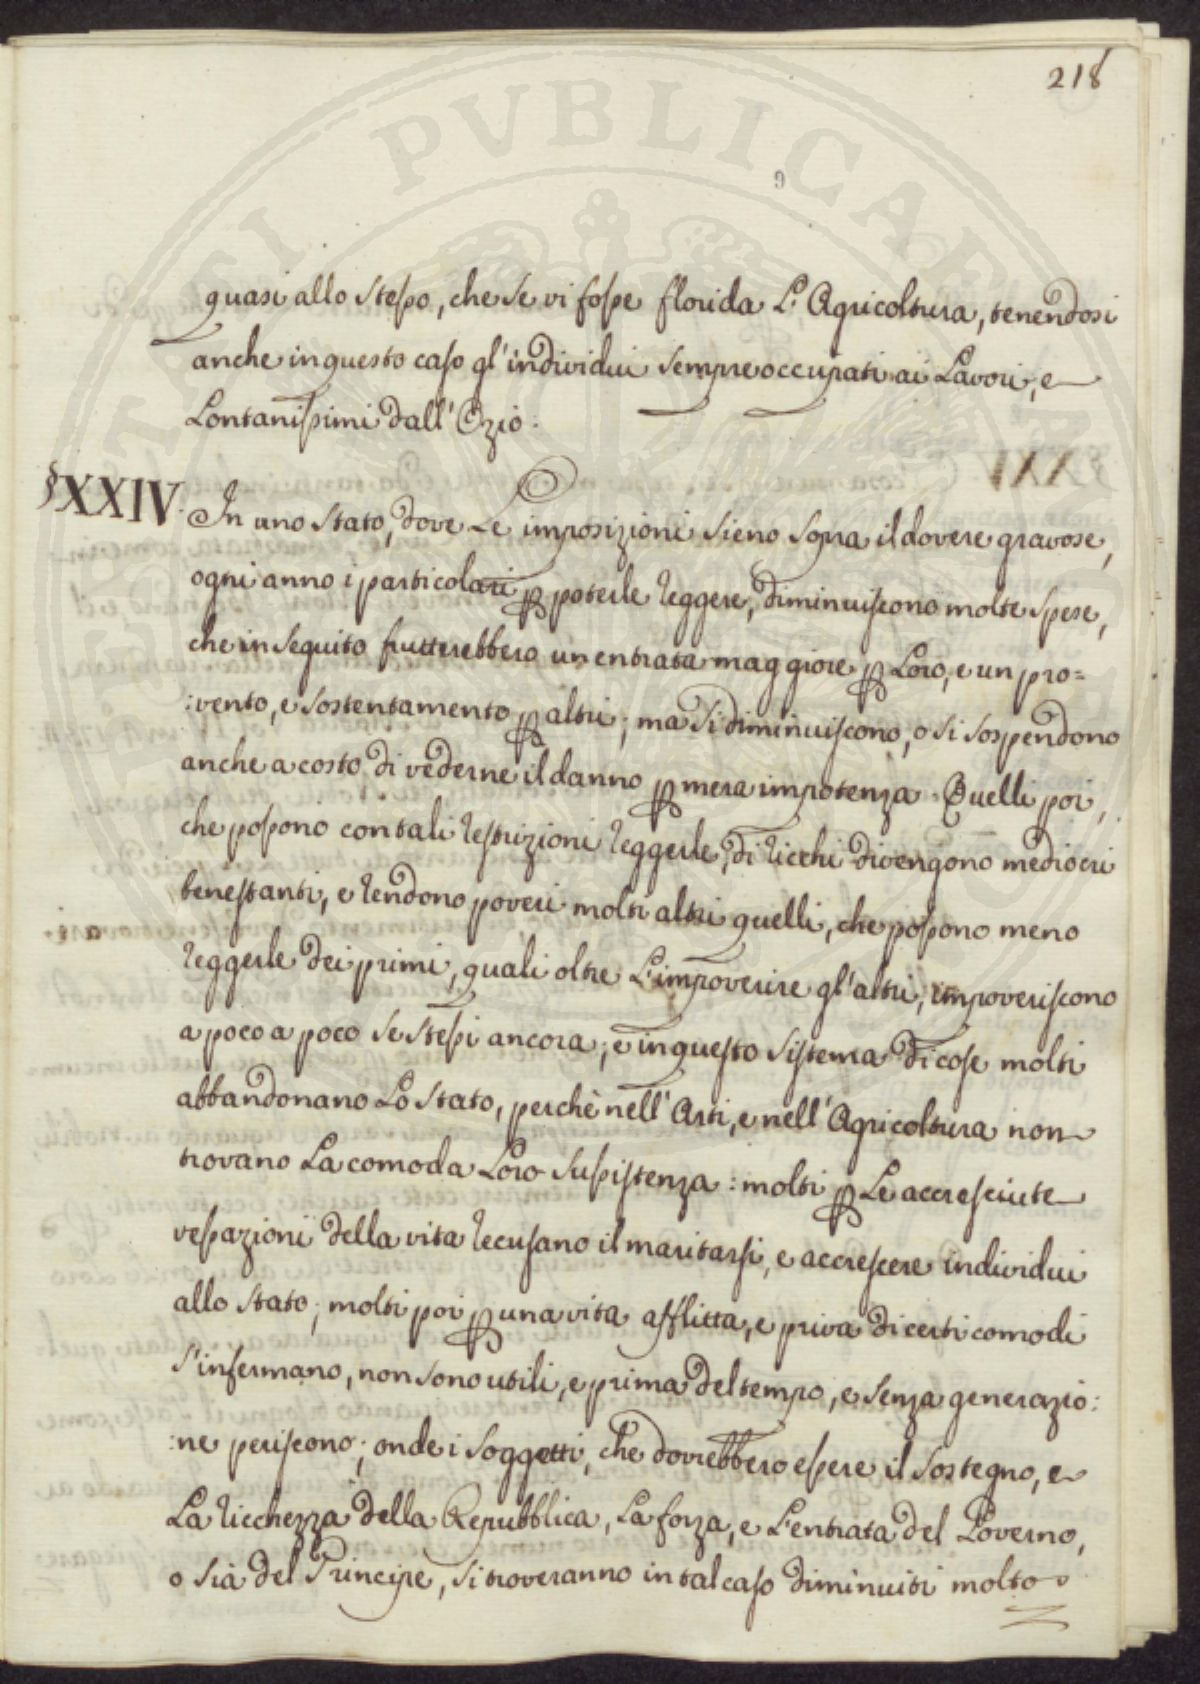 218
9
quasi allo stesso, che se vi fosse florida L'Agricoltura, tenendosi
anche in questo caso gl'individui sempre occupati ai Lavori, e
Lontanissimi dall'Ozio.
§XXIV. In uno Stato, dove Le imposizioni sieno sopra il dovere gravose,
ogni anno i particolari ꝑ poterle reggere, diminuiscono molte spese,
che in seguito frutterebbero un entrata maggiore ꝑ Loro, e un pro=
:vento, e sostentamento ꝑ altri; ma si diminuiscono, o si sospendono
anche a costo di vederne il danno ꝑ mera impotenza. Quelli poi,
che possono con tali restrizioni reggerle, di ricchi divengono mediocri
benestanti, e rendono poveri molti altri quelli, che possono meno
reggerle dei primi, quali oltre L'impoverire gl'altri, impoveriscono
a poco a poco se stessi ancora; e in questo sistema di cose molti
abbandonano Lo Stato, perchè nell'Arti, e nell'Agricoltura non
trovano La comoda Loro sussistenza: molti ꝑ Le accresciute
vessazioni della vita recusano il maritarsi, e accrescere individui
allo Stato; molti poi ꝑ una vita afflitta, e priva di certi comodi
s'infermano, non sono utili, e prima del tempo, e senza generazio:
:ne periscono; onde i soggetti, che dovrebbero essere il sostegno, e
La ricchezza della Repubblica, La forza, e L'entrata del Governo,
o sia del Principe, si troveranno in tal caso diminuiti molto